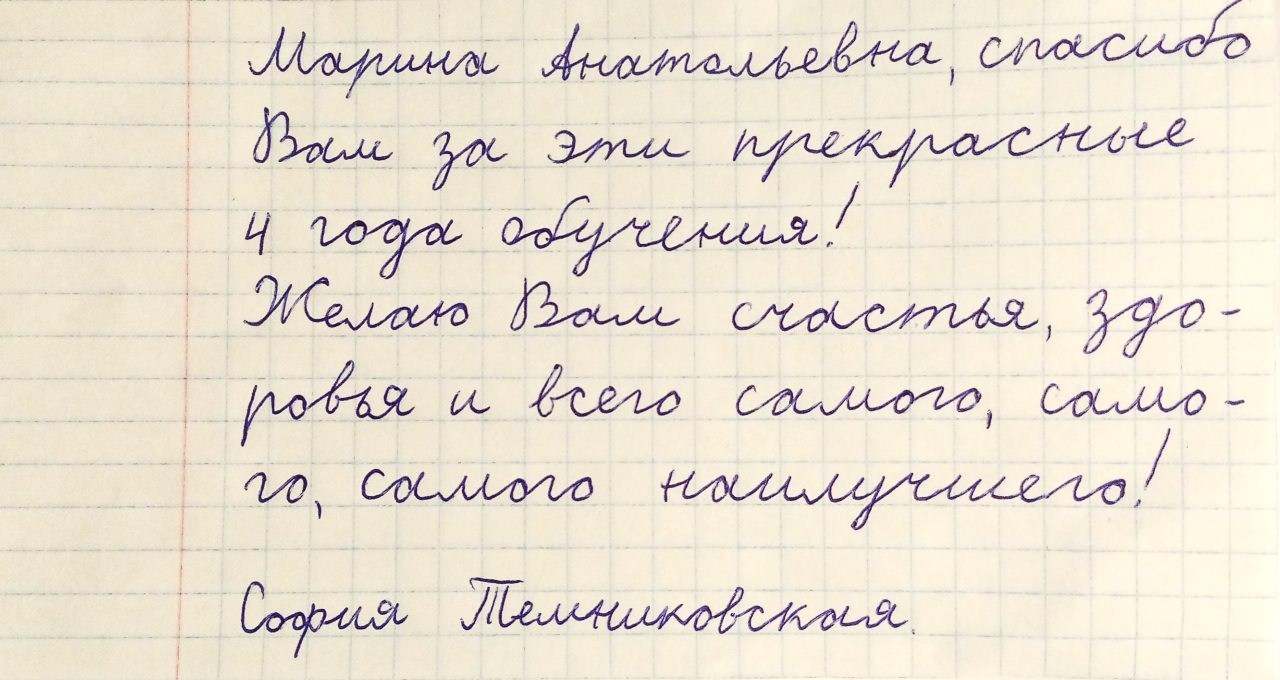 Марина Анатольевна, спасибо
Вам за эти прекрасные
4 года обучения!
Желаю Вам счастья, здо-
ровья и всего самого, само-
го, самого наилучшего!
София Темниковская.